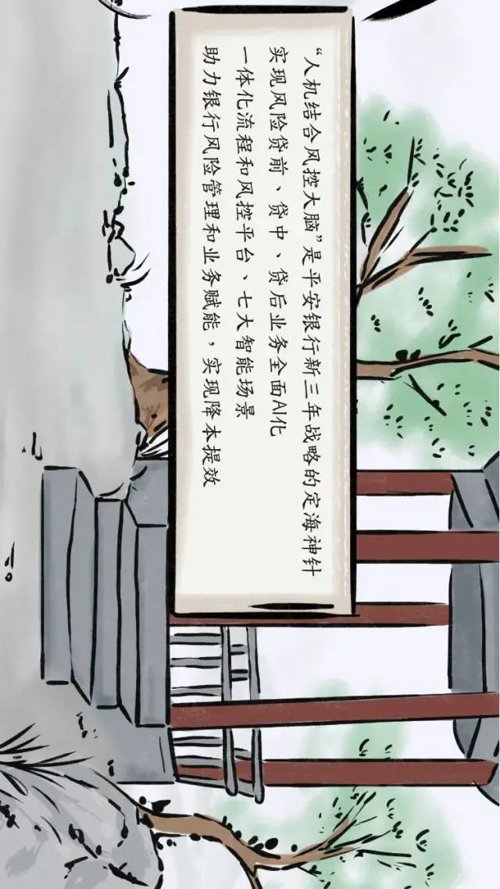 “人机结合风控大脑”是平安银行新三年战略的定海神针
实现风险贷前、贷中、贷后业务全面AI化
一体化流程和风控平台、七大智能场景
助力银行风险管理和业务赋能，实现降本提效